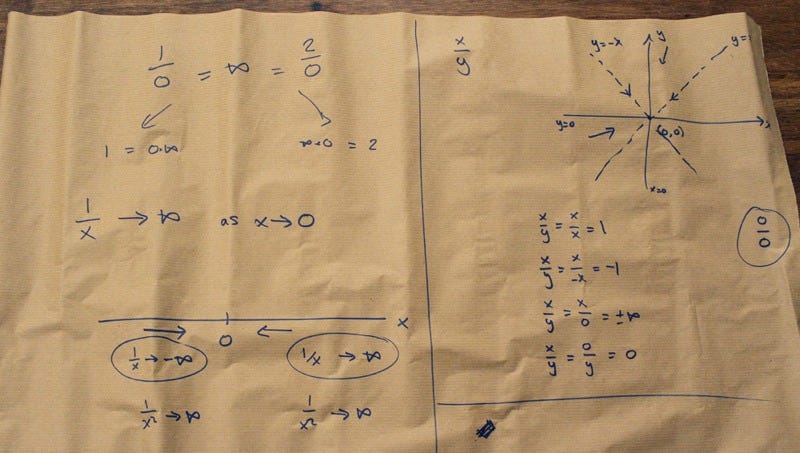 1/0 = ∞ = 2/0
1 = 0·∞
∞·0 = 2
1/x → ∞ as x → 0
x
0
1/x → -∞
1/x → ∞
1/x² → ∞
1/x² → ∞
x/y
y=-x
y
y=
y=0
(0,0)
x
x=0
0/0
x/y = x/x = 1
x/y = x/-x = -1
x/y = x/0 = ±∞
x/y = 0/y = 0